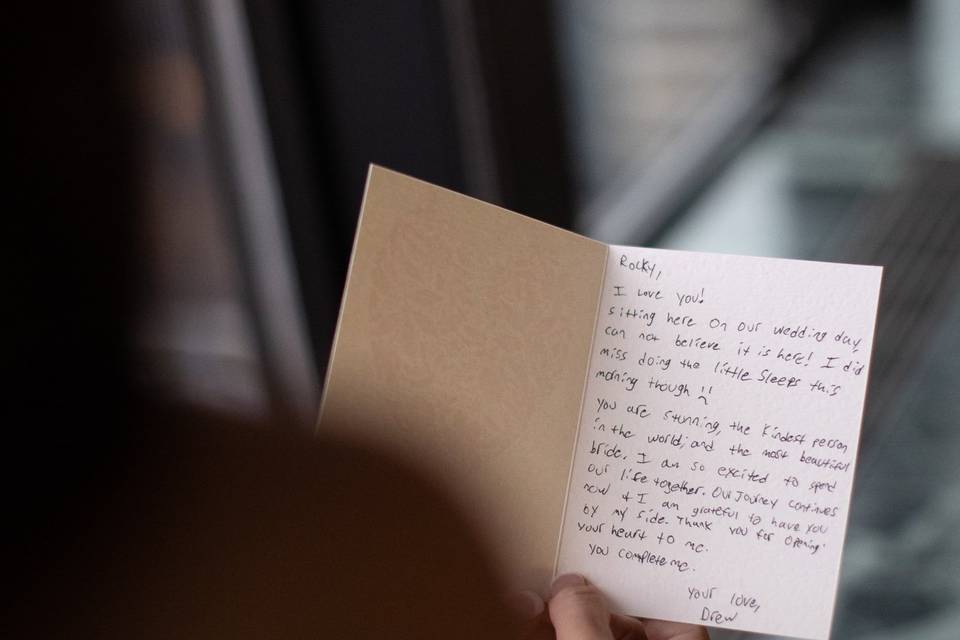 Rocky,
I love you!
Sitting here on our wedding day,
can not believe it is here! I did
miss doing the little Sleeps this
morning though !!
You are stunning, the kindest person
in the world, and the most beautiful
bride. I am so excited to spend
our life together. Our Journey continues
now & I am grateful to have you
by my side. Thank you for opening
your heart to me.
You complete me.
Your love,
Drew